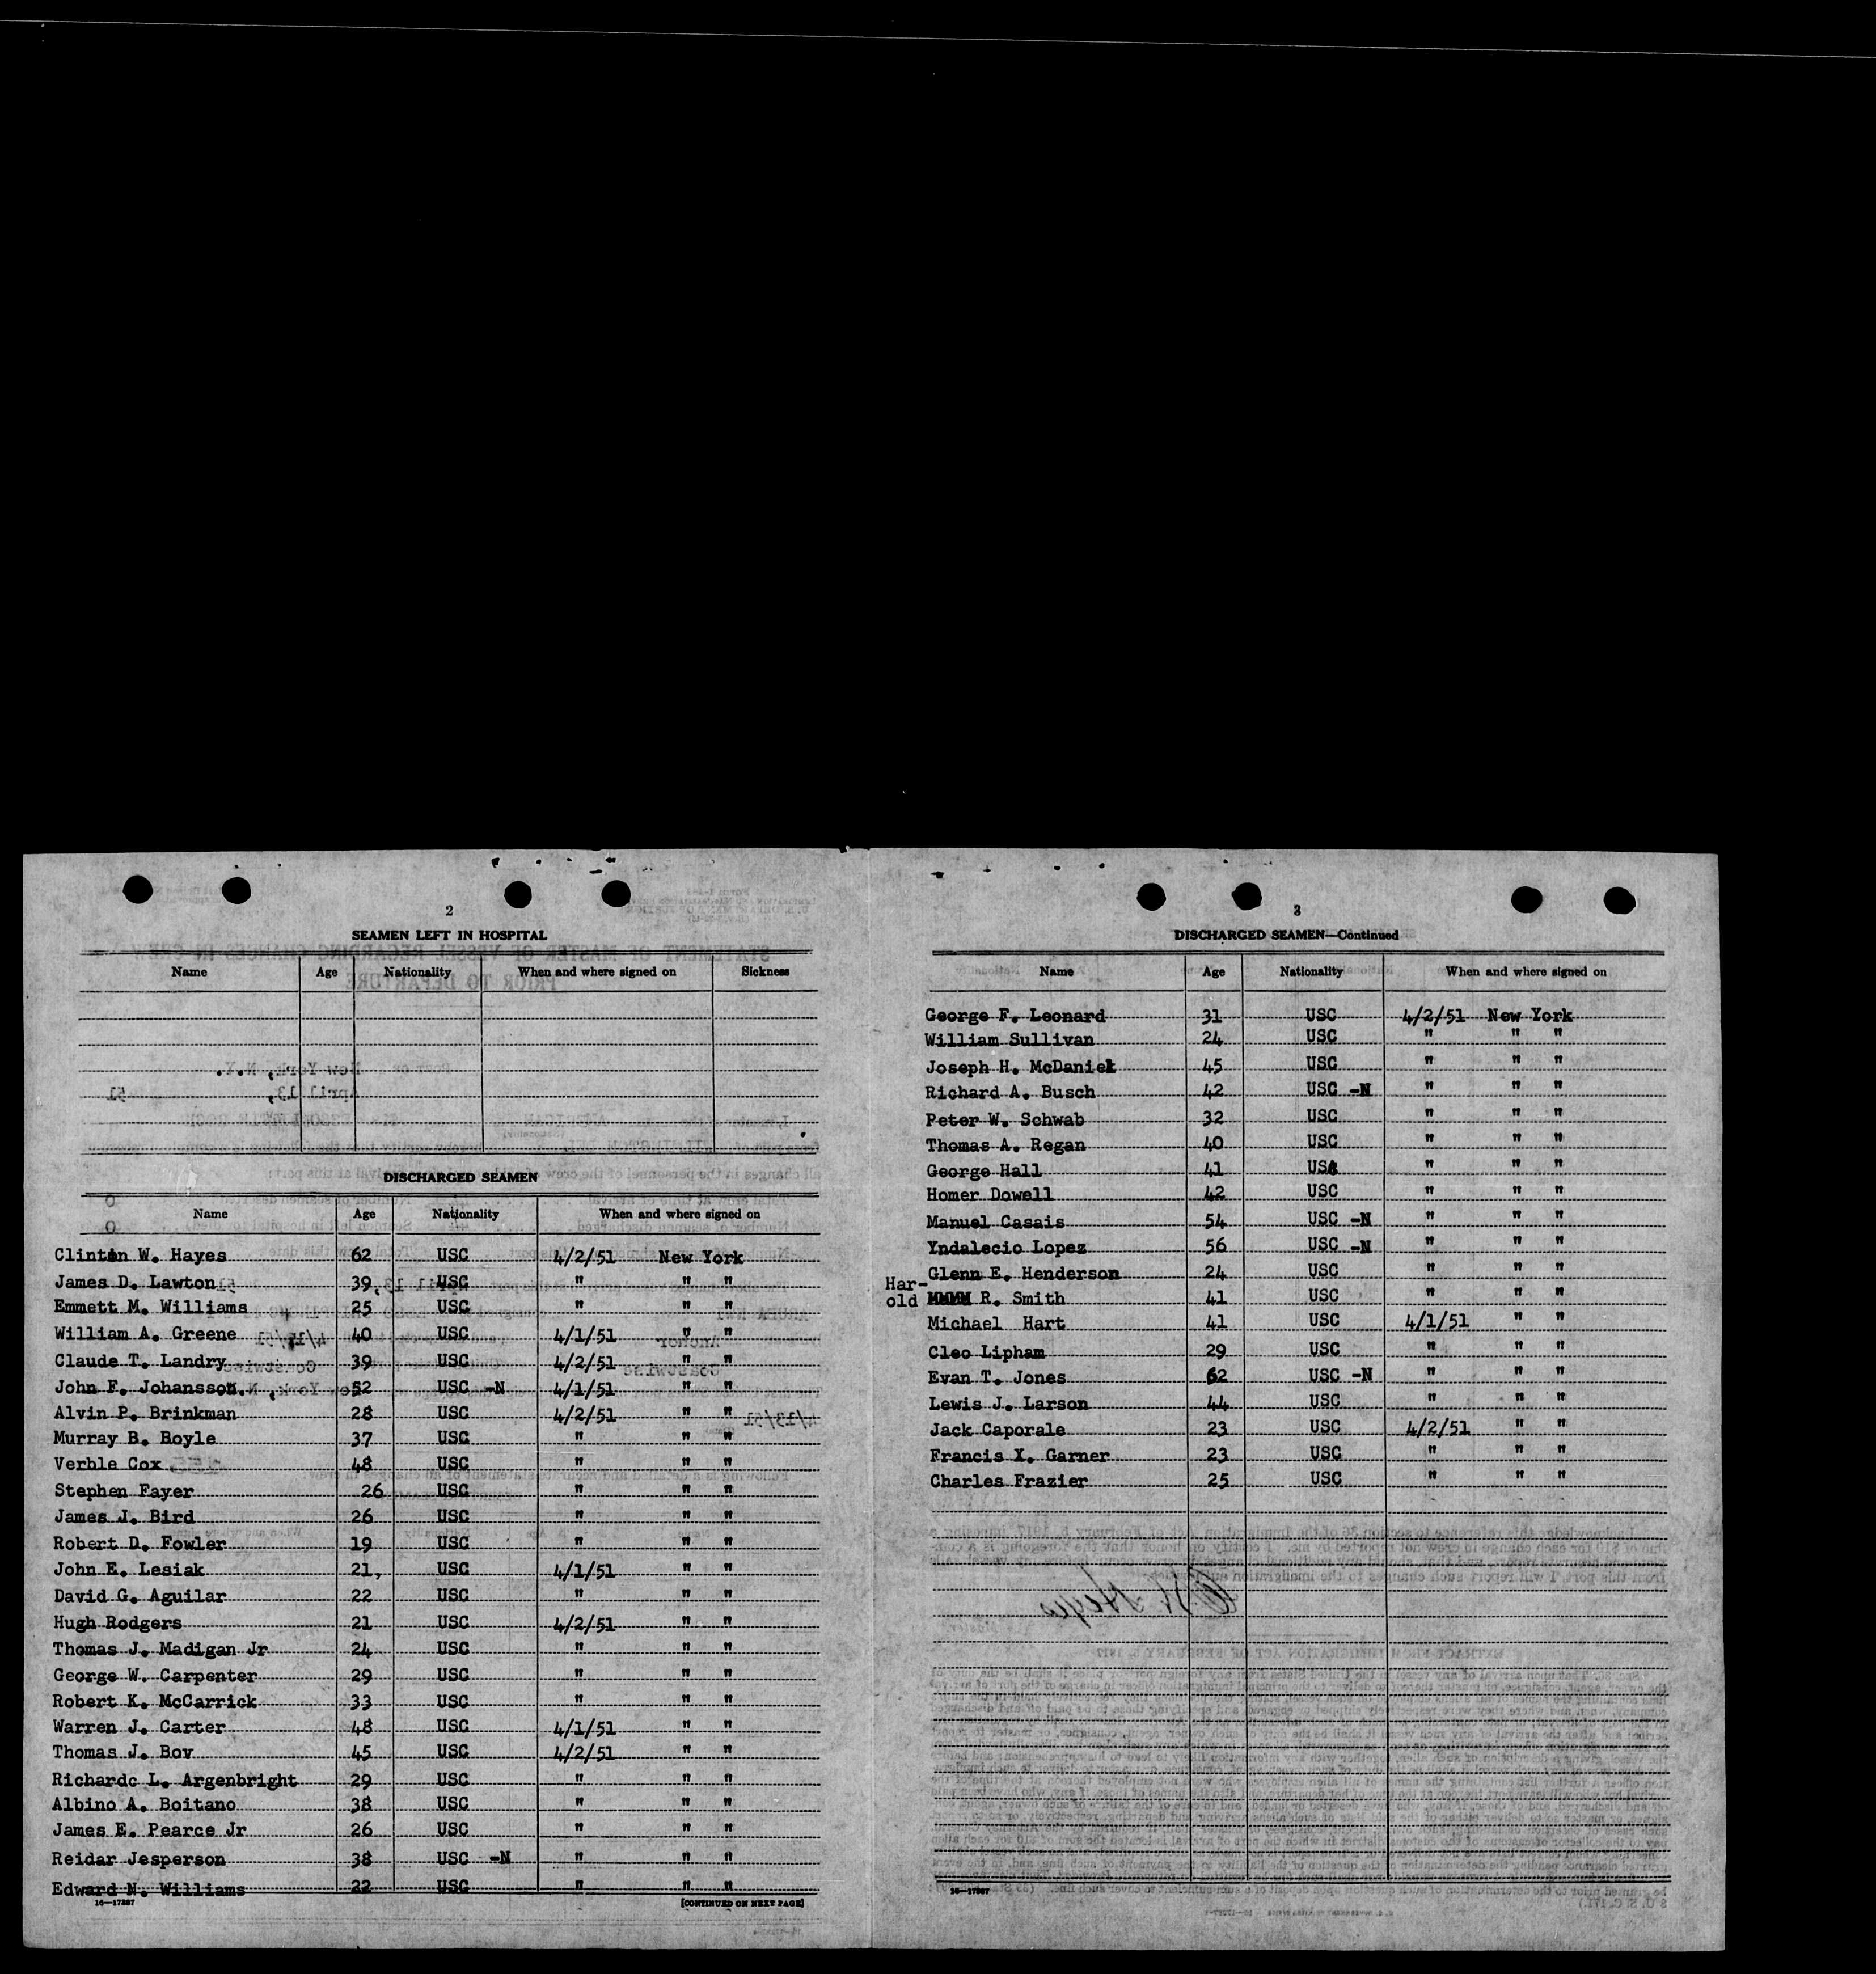 2
SEAMEN LEFT IN HOSPITAL
Name Age Nationality When and where signed on Sickness
DISCHARGED SEAMEN
Name Age Nationality When and where signed on
Clinton W. Hayes 62 USC 4/2/51 New York
James D. Lawton 39 USC " " "
Emmett M. Williams 25 USC " " "
William A. Greene 40 USC 4/1/51 " "
Claude T. Landry 39 USC 4/2/51 " "
John F. Johansson 52 USC -N 4/1/51 " "
Alvin P. Brinkman 28 USC 4/2/51 " "
Murray B. Boyle 37 USC " " "
Verble Cox 48 USC " " "
Stephen Fayer 26 USC " " "
James J. Bird 26 USC " " "
Robert D. Fowler 19 USC " " "
John E. Lesiak 21, USC 4/1/51 " "
David G. Aguilar 22 USC " " "
Hugh Rodgers 21 USC 4/2/51 " "
Thomas J. Madigan Jr 24 USC " " "
George W. Carpenter 29 USC " " "
Robert K. McCarrick 33 USC " " "
Warren J. Carter 48 USC 4/1/51 " "
Thomas J. Bov 45 USC 4/2/51 " "
Richardc L. Argenbright 29 USC " " "
Albino A. Boitano 38 USC " " "
James E. Pearce Jr 26 USC " " "
Reidar Jesperson 38 USC -N " " "
Edward N. Williams 22 USC " " "
16—17287
[CONTINUED ON NEXT PAGE]
3
DISCHARGED SEAMEN—Continued
Name Age Nationality When and where signed on
George F. Leonard 31 USC 4/2/51 New York
William Sullivan 24 USC " " "
Joseph H. McDaniel 45 USC " " "
Richard A. Busch 42 USC -N " " "
Peter W. Schwab 32 USC " " "
Thomas A. Regan 40 USC " " "
George Hall 41 USC " " "
Homer Dowell 42 USC " " "
Manuel Casais 54 USC -N " " "
Yndalecio Lopez 56 USC -N " " "
Glenn E. Henderson 24 USC " " "
Har-
old R. Smith 41 USC " " "
Michael Hart 41 USC 4/1/51 " "
Cleo Lipham 29 USC " " "
Evan T. Jones 62 USC -N " " "
Lewis J. Larson 44 USC " " "
Jack Caporale 23 USC 4/2/51 " "
Francis X. Garner 23 USC " " "
Charles Frazier 25 USC " " "
16—17287